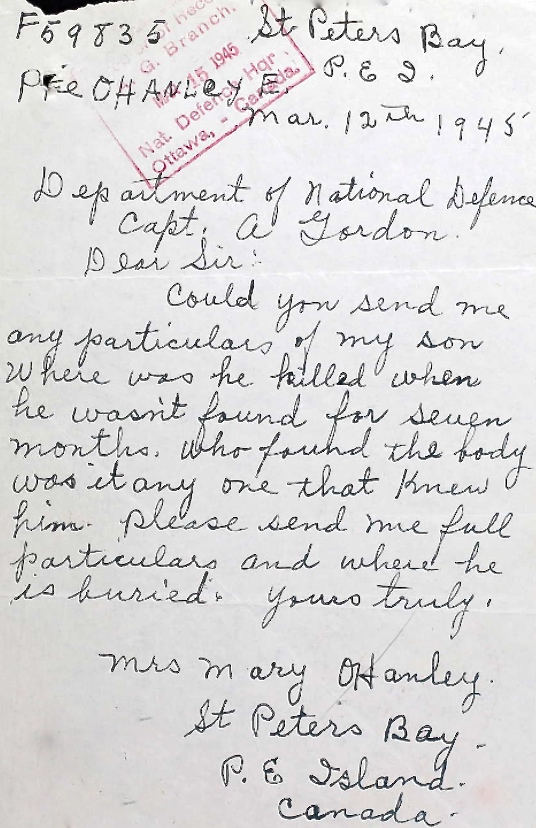 F59835 St Peters Bay.
Pte OHANLey E. P. E I.
G. Branch.
Mar 15 1945
Nat. Defence Hqr
Ottawa, - Canada.
Mar. 12th 1945
Department of National Defence
Capt. A Gordon.
Dear Sir:
Could you send me
any particulars of my son
Where was he killed when
he wasn't found for seven
months. who found the body
was it any one that Knew
him. please send me full
particulars and where he
is buried. yours truly.
Mrs Mary OHanley.
St Peters Bay.
P. E Island.
Canada.